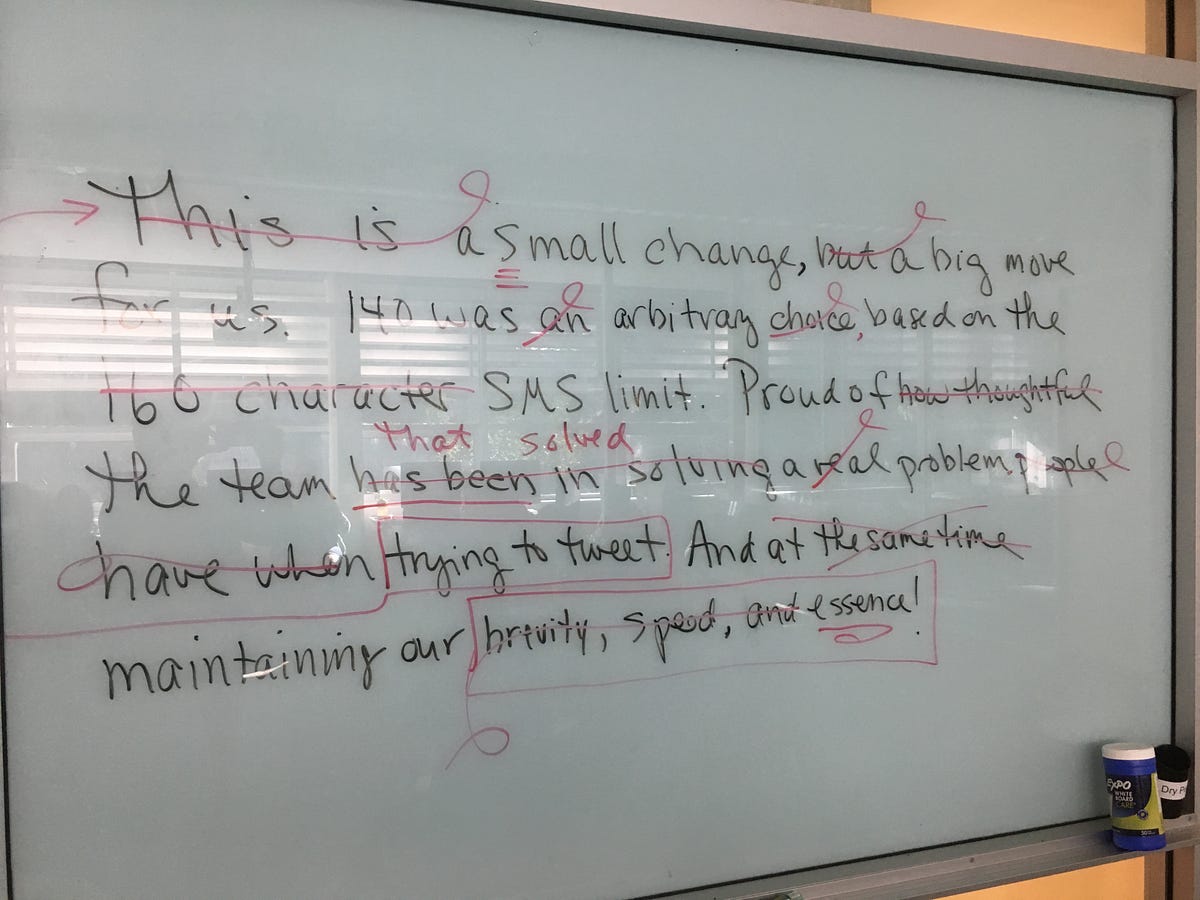 This is a small change, but a big move
for us. 140 was an arbitrary choice, based on the
160 character SMS limit. Proud of how thoughtful
that solved
the team has been in solving a real problem people
have when trying to tweet. And at the same time
maintaining our brevity, speed, and essence!
EXPO
WHITE
BOARD
CARE
Dry